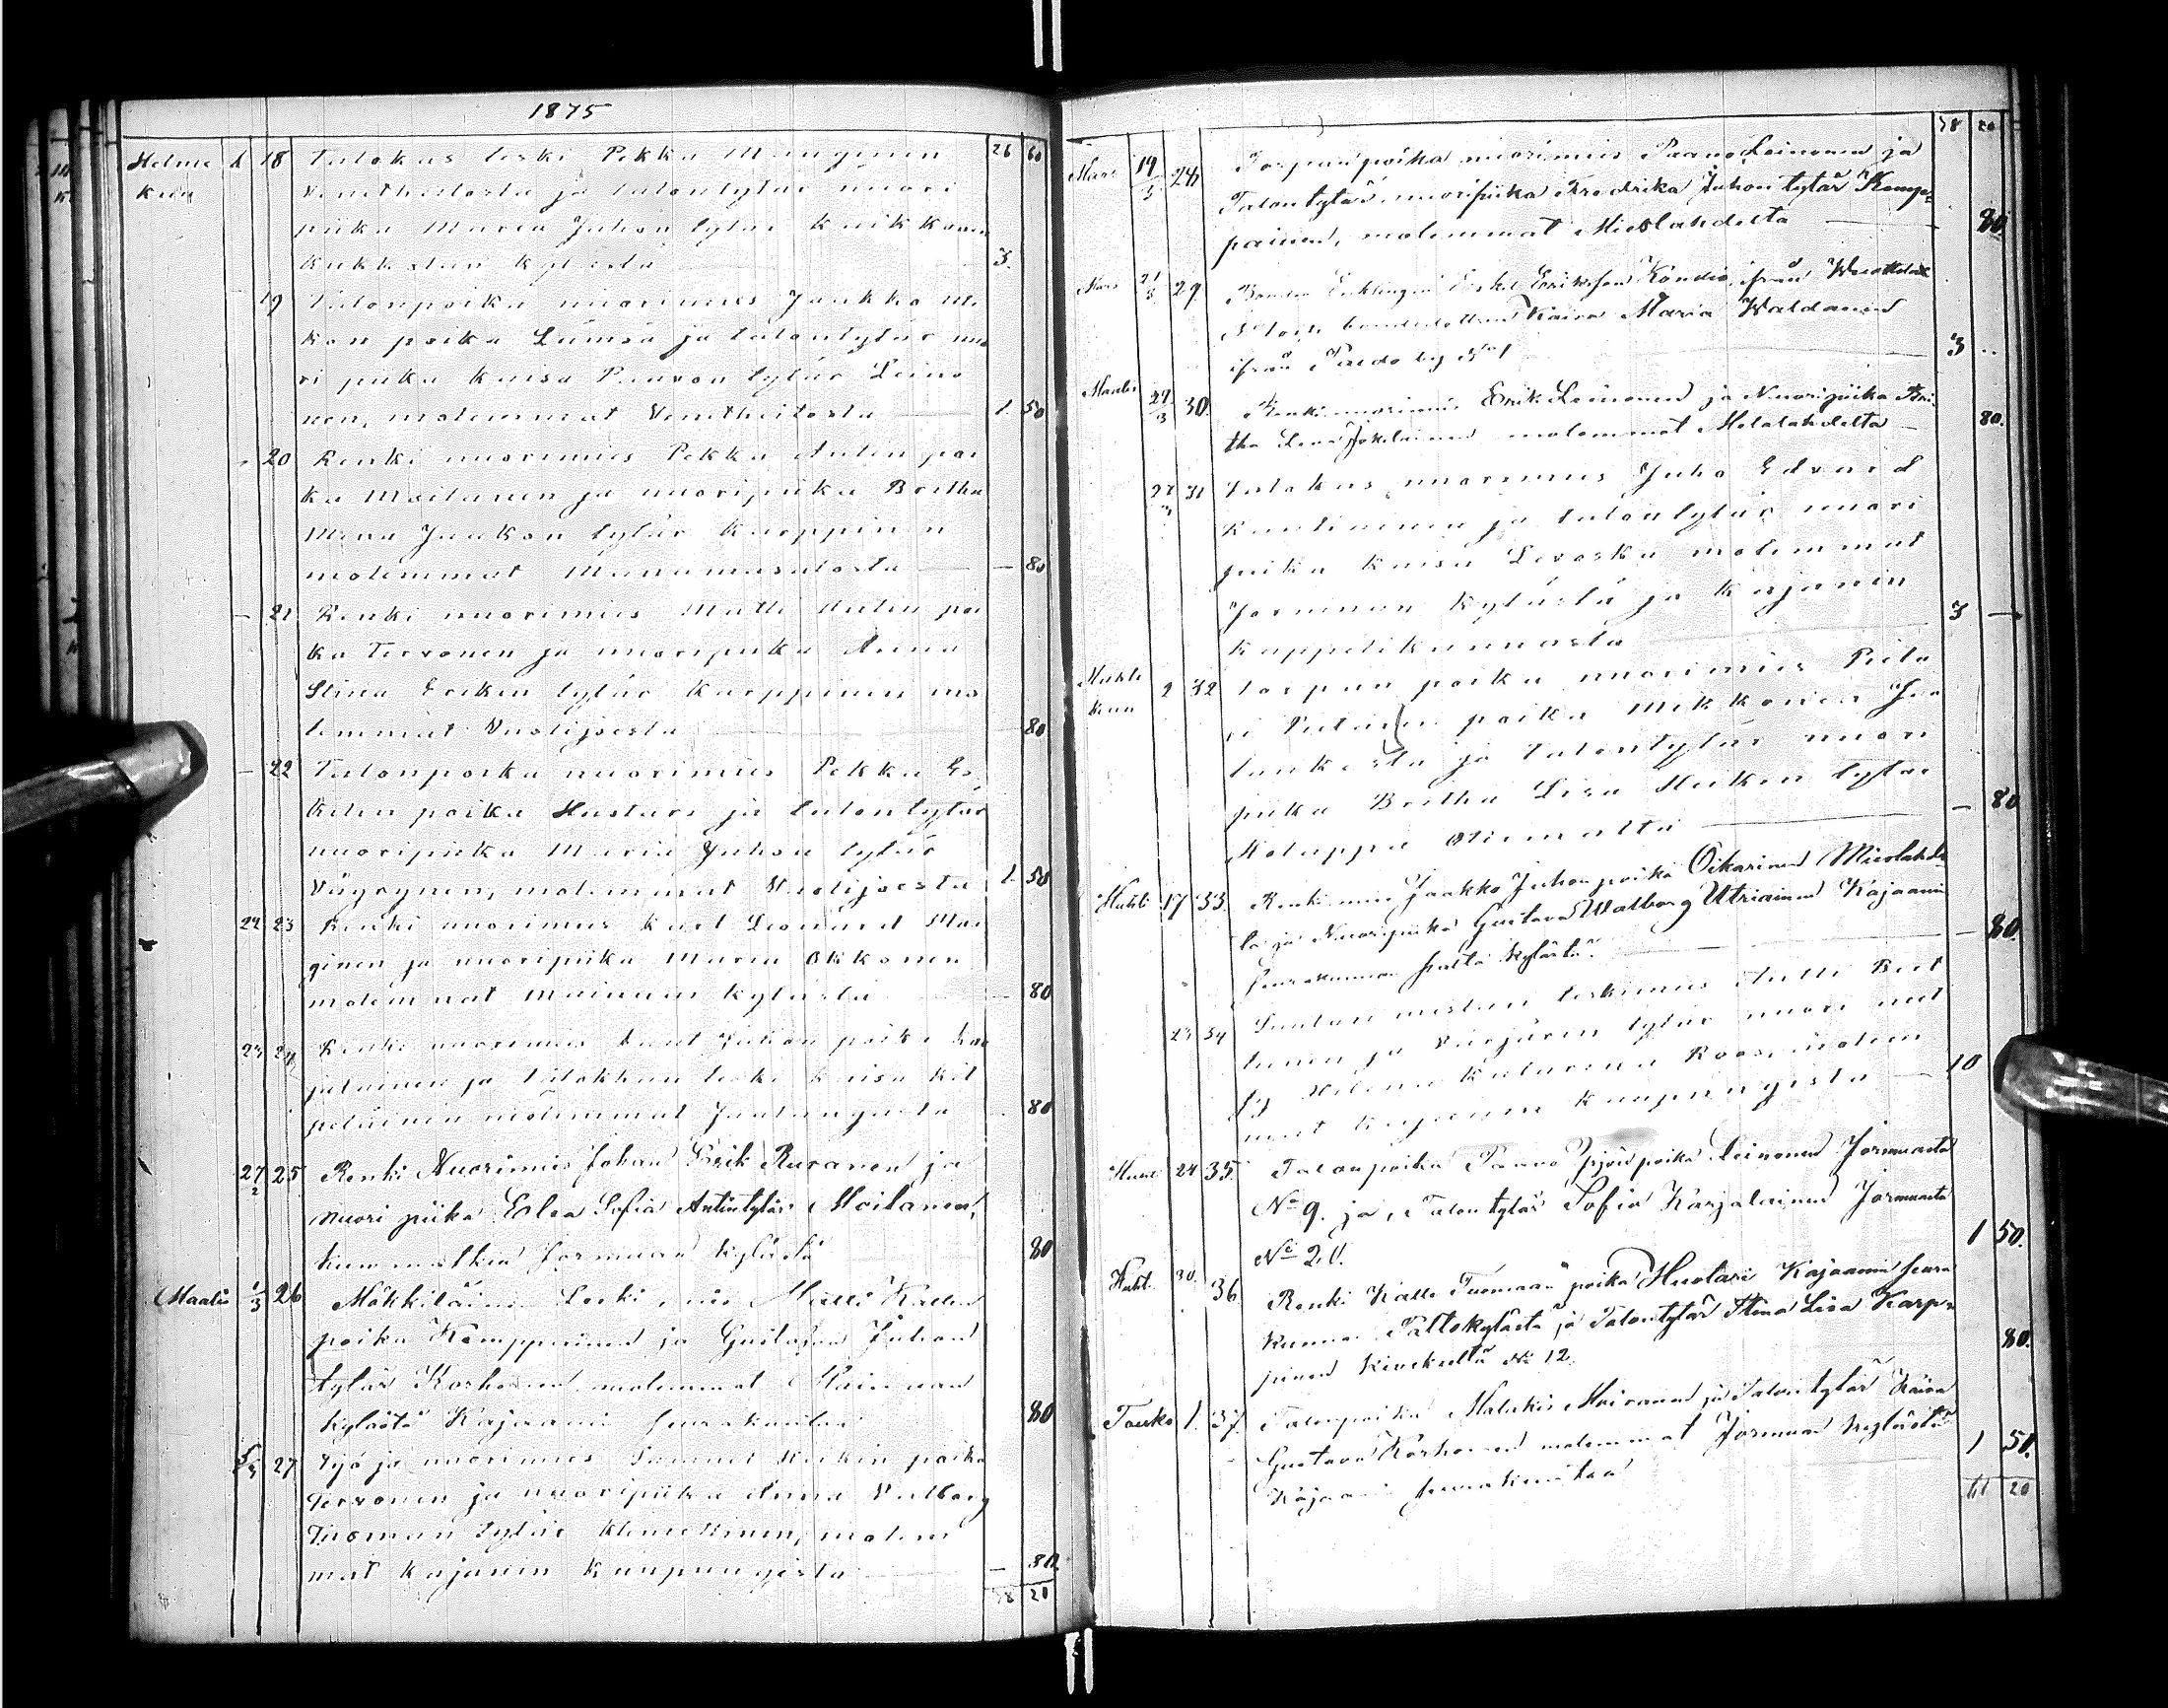 1875
26 60
Helme k 18 Talokas leski Pekka Manginen
kuu Venetheitosta ja talontytär nuori
piika Maria Juhon tytär Keikkonen
kylästä 3.
19 Talonpoika nuorimies Jaakko Mi
kon poika Lämsä ja talontytär nuo
ri piika Kaisa Paavon tytär Leino
nen, molemmat Venetheitosta 1. 50
20 Renki nuorimies Pekka Antin poi
ka Moilanen ja nuoripiika Britha
Mina Jaakon tytär Karppinen
molemmat Manamansalosta — 80
21 Renki nuorimies Matti Antin poi
ka Tervonen ja nuoripiika Anna
Stina Erikin tytär Karppinen mo
lemmat Vuolijoesta 80
22 Talonpoika nuorimies Pekka Es
kelin poika Hustari ja talontytär
nuoripiika Maria Juhon tytär
Väyrynen, molemmat Vuolijoesta 1. 50
22 23 Renki nuorimies Karl Leonard Man
ginen ja nuoripiika Maria Okkonen
molemmat Mainuan kylästä — 80
24 Renki nuorimies Juhon poika Kar
jalainen ja talokkaan leski Kaisa Kil
peläinen molemmat 80
27/2 25 Renki Nuorimies Johan Erik Ruranen ja
Nuori piika Elsa Sofia Antintytär Moilanen,
Jormuan kylästä 80
Maalis 1/3 26 Mökkiläinen Leski mies Matti Kallen
poika Kemppainen ja Gustafva Juhan
tytär Korhonen molemmat Mainuan
kylästä Kajaanin seurakuntaa 80
27 nuorimies Samuel Heikin poika
Tervonen ja nuoripiika Anna Valborg
Tuoman tytär Klemettinen, molem
mat Kajanin Kaupungista — 80
38 20
38 20
Mars 19/3 28 Torpanpoika nuorimies Paavo Leinonen ja
Talontytär nuoripiika Fredrika Juhon tytär Kemp-
painen, molemmat Mieslahdelta 80
Mars 21/3 29. Bonden Enklingen Eskel Eriksson Kondio, ifrån
bondedottren Kaisa Maria Waldanen
ifrån Paldo by No 1 3 ..
Maalis 27/3 30. Renki nuorimies Erik Leinonen ja Nuoripiika Bri-
tha Lena Jokelainen molemmat Melalahdelta 80.
27/3 31 Talokas nuorimies Juho Edvard
ja talontytär nuori
piika Kaisa Leroska molemmat
Jormuan kylästä ja Kajanin
Kappelikunnasta 3 —
Huhti 2 32 torpan poika nuorimies Pieta
kuu ri Pietarin poika Mikkonen
ja talontytär nuori
piika Britha Lisa Heikin tytär
Holappa — 80
Huhti 17 33. Renki mies Jaakko Juhon poika Oikarinen Mieslahde-
la ja Nuoripiika Gustava Walborg Utriainen Kajaanin
Seurakunnan kylästä. — 80.
23 34 leskimies Antti
ja tytär nuori neit
Katarina Roos molem
mat Kajanin Kaupungista — 10
Huht 24 35. Talonpoika Paavo Yrjön poika Leinonen Jormuasta
No 9. ja, Talontytär Sofia Karjalainen Jormuasta
No 20. 1 50.
Huht. 30. 36. Renki Kalle Tuomaan poika Huotari Kajaanin seura
kunnan Paltokylästä ja Talontytär Stina Lisa Karp-
pinen No 12. 80.
Touko 1. 37. Talonpoika Malakias Moisanen ja Talontytär Kaisa
Gustava Korhonen molemmat Jormuan kylästä
Kajaani seurakuntaa 1 50.
61 20